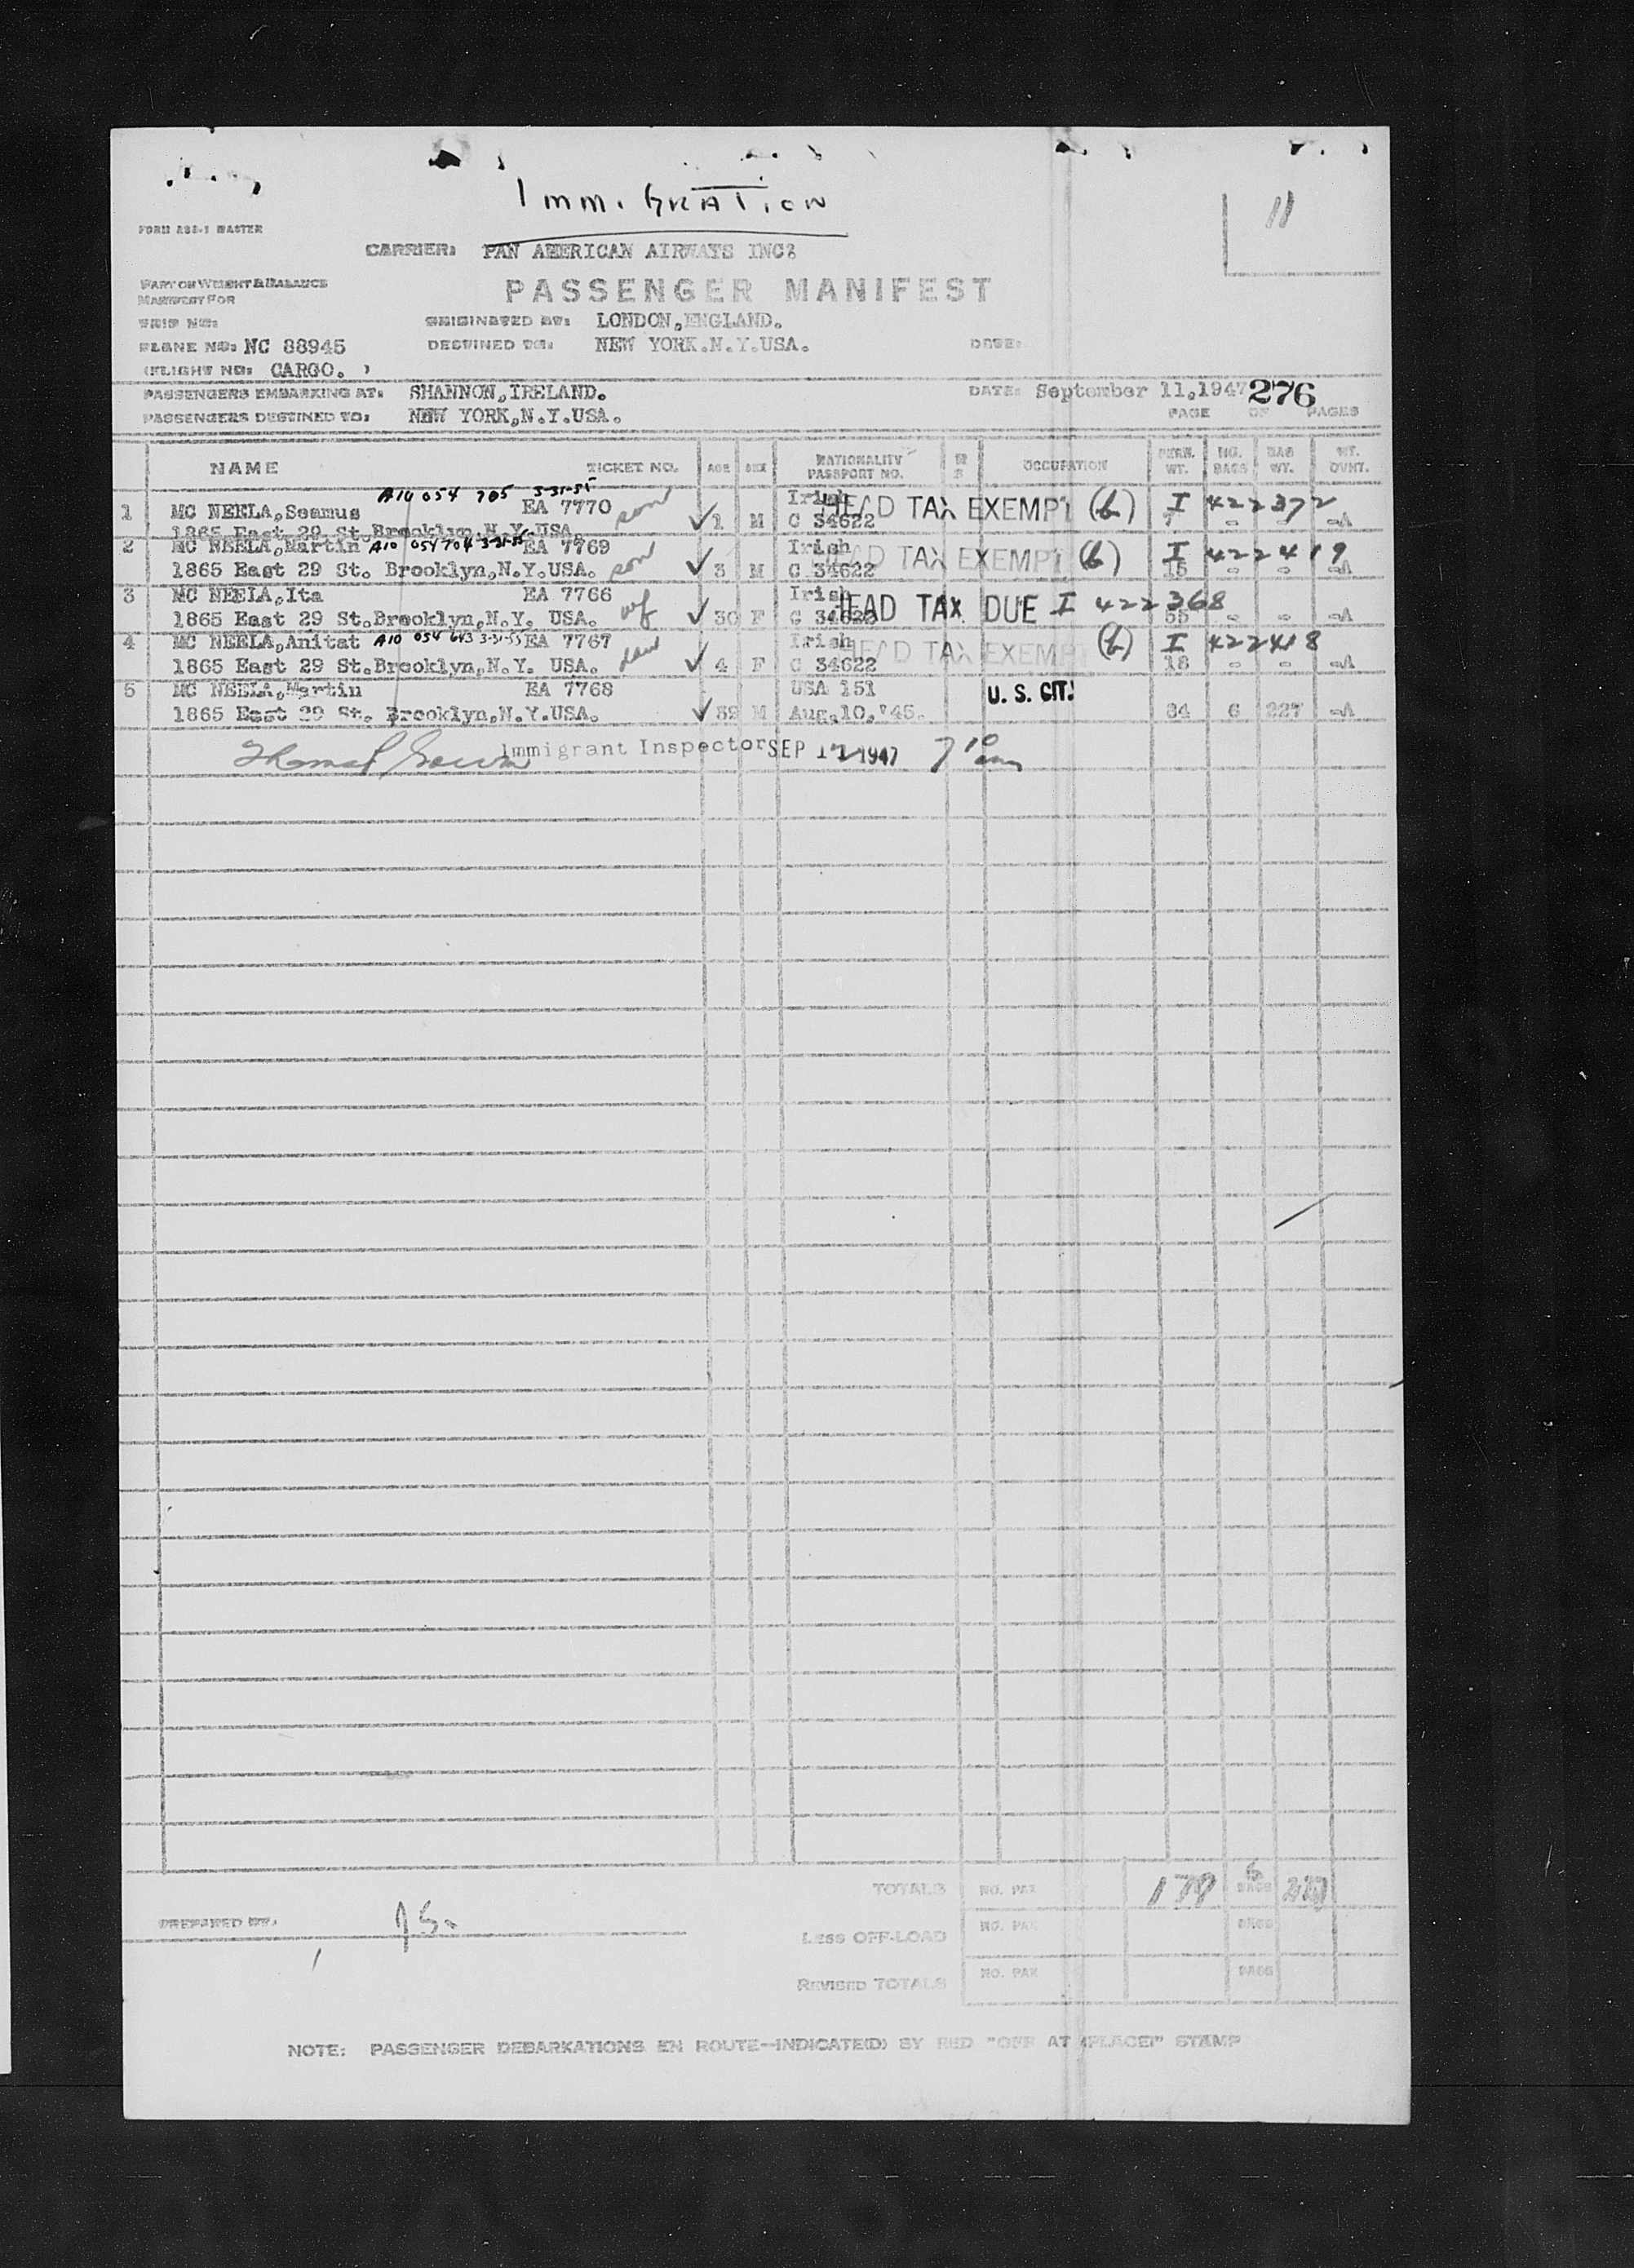 IMMIGRATION
11
FORM ASS-1 MASTER
CARRIER: PAN AMERICAN AIRWAYS INC:
PART OR WEIGHT & BALANCE
MANIFEST FOR
PASSENGER MANIFEST
TRIP NO:
ORIGINATED AT: LONDON,ENGLAND.
PLANE NO: NC 88945
DESTINED TO: NEW YORK.N.Y.USA.
DATE:
(FLIGHT NO: CARGO. )
PASSENGERS EMBARKING AT: SHANNON,IRELAND.
DATE: September 11,1947 276
PASSENGERS DESTINED TO: NEW YORK,N.Y.USA.
PAGE OF PAGES
NAME TICKET NO. AGE SEX NATIONALITY PASSPORT NO. OCCUPATION PERN. WT. NO. BAGS BAG WT. WT. OVHT.
A10 054 705 3-31-55
1 MC NEELA,Seamus EA 7770 son Irish HEAD TAX EXEMPT (b) I 422372
1865 East 29 St.Brooklyn.N.Y.USA. 1 M C 34622 7 - - -A
2 MC NEELA,Martin A10 054 704 3-31-55 EA 7769 Irish HEAD TAX EXEMPT (b) I 422419
1865 East 29 St. Brooklyn,N.Y.USA. son 3 M C 34622 15 - - -A
3 MC NEELA,Ita EA 7766 Irish HEAD TAX DUE I 422368
1865 East 29 St.Brooklyn,N.Y. USA. wf 30 F C 34622 55 - - -A
4 MC NEELA,Anitat A10 054 643 3-31-55 EA 7767 Irish HEAD TAX EXEMPT (b) I 422418
1865 East 29 St.Brooklyn,N.Y. USA. dau 4 F C 34622 18 - - -A
5 MC NEELA,Martin EA 7768 USA 151 U. S. CIT.
1865 East 29 St. Brooklyn,N.Y.USA. 39 M Aug.10,'45. 84 6 227 -A
Immigrant Inspector SEP 12 1947 7 10 am
TOTALS NO. PAX 179 6 BAGS 227
PREPARED BY:
LESS OFF-LOAD NO. PAX BAGS
REVISED TOTALS NO. PAX BAGS
NOTE: PASSENGER DEBARKATIONS EN ROUTE—INDICATE(D) BY RED "OFF AT (PLACE)" STAMP